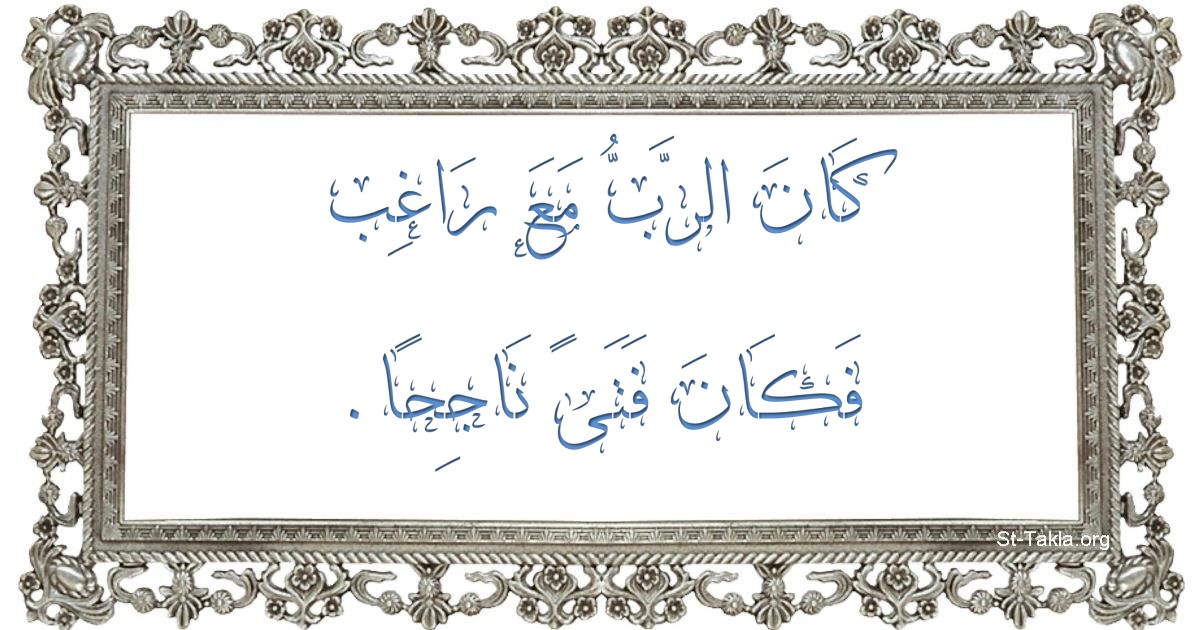 كَانَ الرَّبُّ مَعَ رَاغِب
فَكَانَ فَتَىً نَاجِحًا .
St-Takla.org